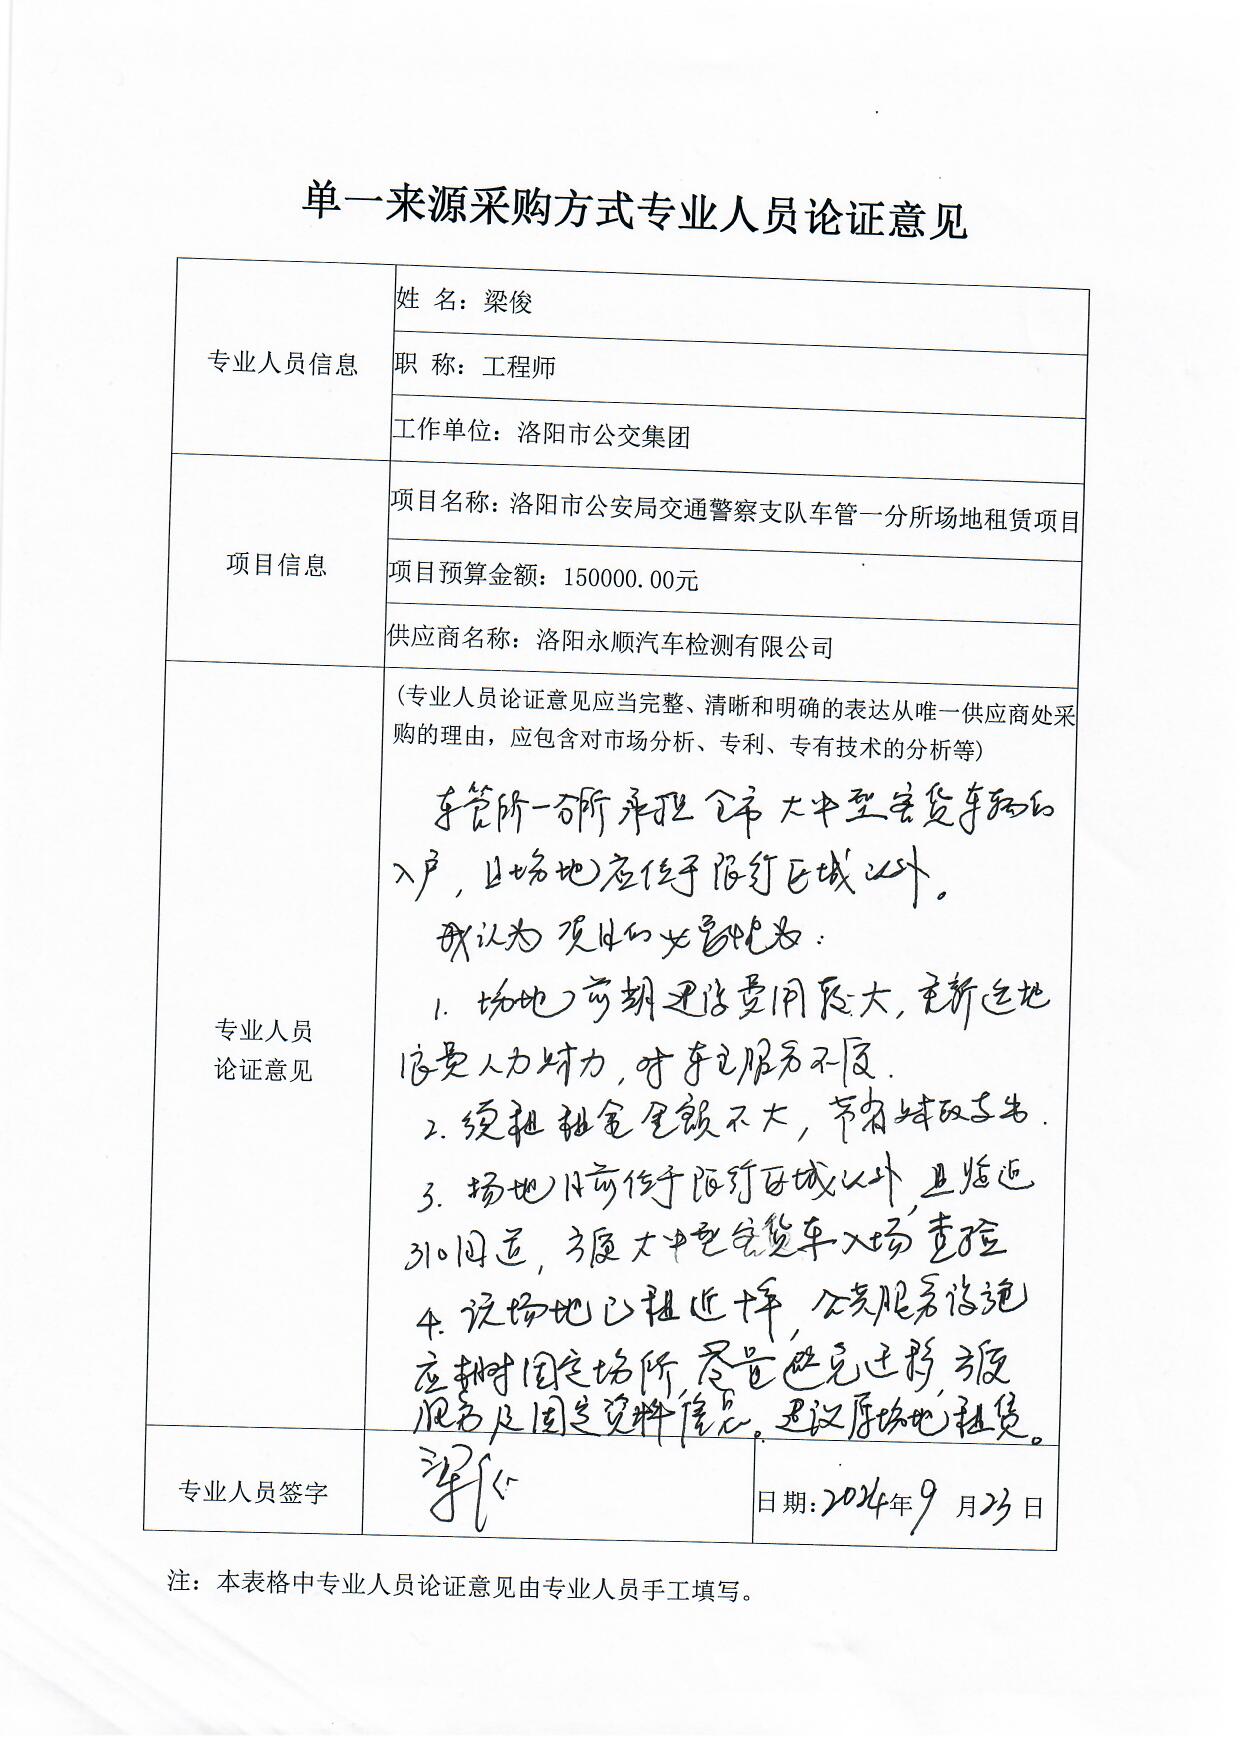 单一来源采购方式专业人员论证意见
专业人员信息
姓 名：梁俊
职 称：工程师
工作单位：洛阳市公交集团
项目信息
项目名称：洛阳市公安局交通警察支队车管一分所场地租赁项目
项目预算金额：150000.00元
供应商名称：洛阳永顺汽车检测有限公司
专业人员
论证意见
(专业人员论证意见应当完整、清晰和明确的表达从唯一供应商处采
购的理由，应包含对市场分析、专利、专有技术的分析等)
车管所一分所承担全市大中型客货车辆的
入户，且场地应位于限行区域以外。
我认为项目的必要性为：
1. 场地前期建设费用较大，重新选地
浪费人力财力，对车主服务不便.
2. 续租租金金额不大，节省财政支出.
3. 场地目前位于限行区域以外，且临近
310国道，方便大中型客货车入场查验
4. 该场地已租近十年，公共服务设施
应有固定场所，尽量避免迁移，方便
服务及固定资料信息。建议原场地租赁。
专业人员签字
梁俊
日期：2024年9月23日
注：本表格中专业人员论证意见由专业人员手工填写。